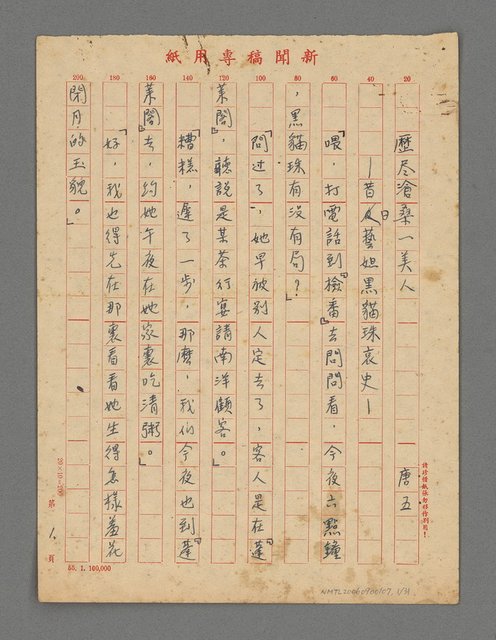 新聞稿專用紙
20
40
60
80
100
120
140
160
180
200
歷尽滄桑一美人　唐五
—昔日藝妲黑貓珠哀史—
「喂，打電話到『檢番』去問問看，今夜六點鐘
，黑貓珠有没有局？」
「問过了，她早被别人定去了，客人是在『蓬
萊閣』，聽説是某茶行宴請南洋顧客。」
「糟糕，遲了一步，那麽，我们今夜也到『蓬
萊閣』去，约她午夜在她家裏吃清粥。」
「好，我也得先在那裏看看她生得怎樣羞花
閉月的玉貌。」
請珍惜紙張勿移作別用！
20×10=200
第 1 頁
55. 1. 100,000
NMTL20060900107, 1/31